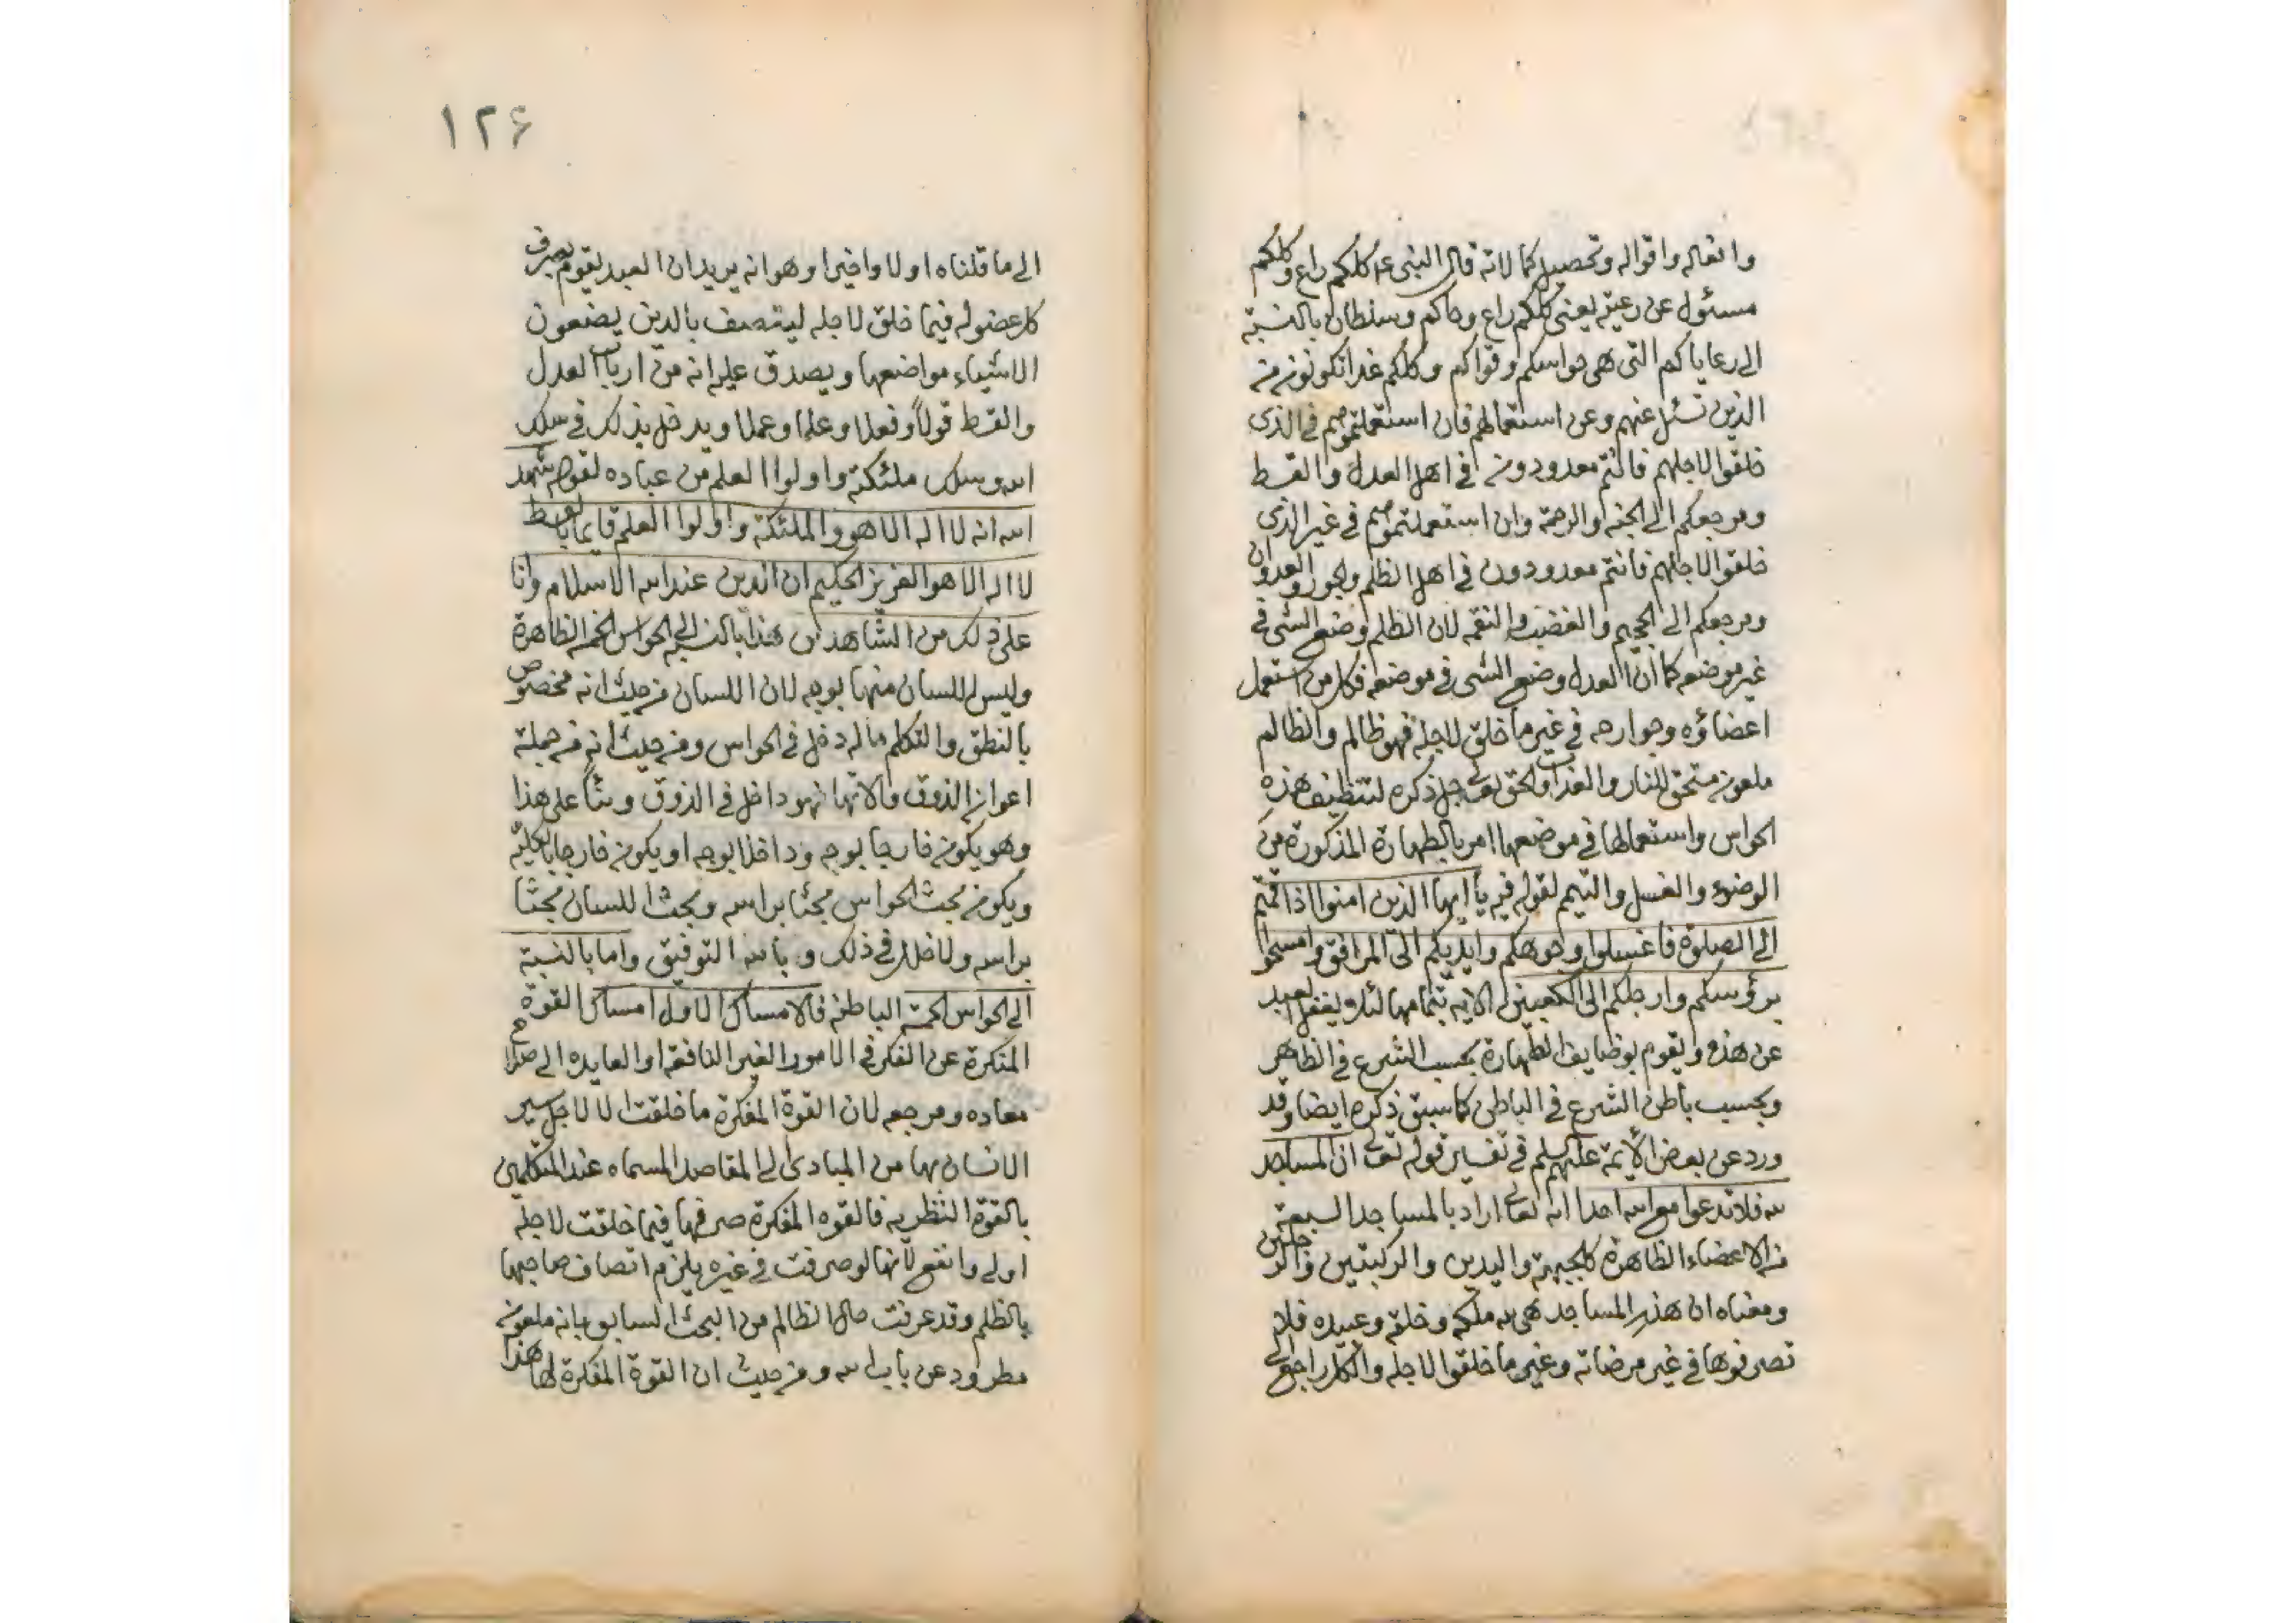 وافعاله واقواله وتحصيل كمالاته قال النبى ع م كلكم راع وكلكم
مسئول عن رعيته يعنى كلكم راع وحاكم وسلطان بالنسبة
الى رعاياكم التى هى حواسكم وقواكم وكلكم غدا تكونون من
الذين تسئل عنهم وعن استعمالهم فان استعملتموهم فى الذى
خلقوا لاجلهم فانتم معدودون فى اهل العدل والقسط
ومرجعكم الى الجنه والرحمة وان استعملتموهم فى غير الذى
خلقوا لاجلهم فانتم معدودون فى اهل الظلم والجور والعدوان
ومرجعكم الى الجحيم والغضب والنقمه لان الظلم وضع الشى فى
غير موضعه كما ان العدل وضع الشى فى موضعه فكل من استعمل
اعضاؤه وجوارحه فى غير ما خلق لاجله فهو ظالم والظالم
ملعون مستحق للنار والعذاب والحق تعالى جل ذكره لتنظيف هذه
الحواس واستعمالها فى موضعها امر بالطهارة المذكورة من
الوضوء والغسل والتيمم لقوله فيه يا ايها الذين امنوا اذا قمتم
الى الصلوة فاغسلوا وجوهكم وايديكم الى المرافق وامسحوا
برؤسكم وارجلكم الى الكعبين الايه بتمامها لئلا يغفل العبد
عن هذه ويقوم بوظايف الطهارة بحسب الشرع فى الظاهر
وبحسب باطن الشرع فى الباطن كما سبق ذكره ايضا وقد
ورد عن بعض الأيمة عليهم السلم فى تفسير قوله تعالى ان المساجد
لله فلا تدعوا مع الله احدا انه تعالى اراد بالمساجد السبعة
من الاعضاء الظاهرة كالجبهة واليدين والركبتين والرجلين
ومعناه ان هذه المساجد هى لله ملكه وخلقه وعبيده فلا
تصرفوها فى غير مرضاته وغير ما خلقوا لاجله والكل راجع الى
١٢۶
الى ما قلناه اولا واخيرا وهو انه يريد ان العبد يقوم بصرف
كل عضو له فيما خلق لاجله ليتصف بالذين يضعون
الاشياء مواضعها ويصدق عليه انه من ارباب العدل
والقسط قولاً وفعلا وعلما وعملا ويدخل بذلك فى سلك
الله وسلك ملئكته واولوا العلم من عباده لقوله شهد
الله انه لا اله الا هو والملئكة واولوا العلم قايما بالقسط
لا اله الا هو العزيز الحكيم ان الدين عند الله الاسلام وانا
على ذلك من الشاهدين هذا بالنسبه الى الحواس الخمسه الظاهرة
وليس للسان منها بوجه لان اللسان من حيث انه مخصوص
بالنطق والتكلم ماله دخل فى الحواس ومن حيث انه من جملة
اعوان الذوق والاتها فهو داخل فى الذوق وبناً على هذا
وهو يكون خارجا بوجه وداخلا بوجه او يكون خارجا بالكليه
ويكون بحث الحواس بحثا براسه وبحث اللسان بحثا
براسه ولا خلل فى ذلك وبالله التوفيق واما بالنسبة
الى الحواس الخمسة الباطنه فالامساك الاول امساك القوة
المفكرة عن الفكر فى الامور الغير النافعه او العايده الى
معاده ومرجعه لان القوة المفكرة ما خلقت الا لاجل سير
الانسان بها من المبادى الى المقاصد المسماه عند المتكلمين
بالقوة النظريه فالقوه المفكرة صرفها فيما خلقت لاجله
اولى وانفع لانها لو صرفت فى غيره يلزم اتصاف صاحبها
بالظلم وقد عرفت حال الظالم من البحث السابق بانه ملعون
مطرود عن باب الله ومن حيث ان القوة المفكرة لها هذا